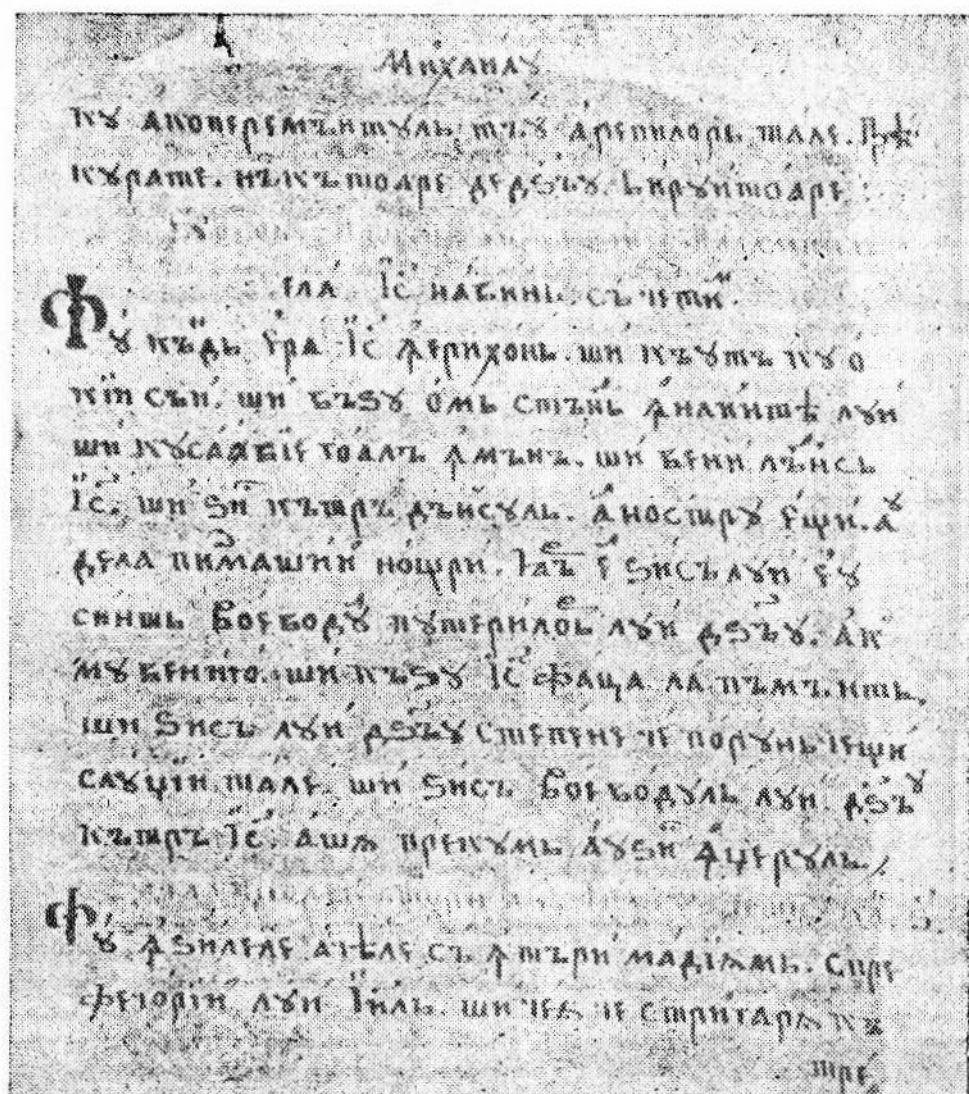 Михаилꙋ
кꙋ акоперемѫнтꙋль тъꙋ арепилорь тале. Прѣ
кꙋрате. нъкътоаре дедѕъꙋ. ьнрꙋитоаре
гла І҃с навинь. съ четиⷨ
Фꙋ къⷩдь єра І҃с ꙟерихонь. ши къꙋтъ кꙋ ѻ
кїи съи. ши въѕꙋ омь стънь ꙟнаинтѣ лꙋи
ши кꙋсабїе гоалъ ꙟмънъ. ши вени лънсь
І҃с. ши ѕи кътръ дънсꙋль. аностирꙋ єщи. аꙋ
дела пимаший нощри. Іаръ є ѕисъ лꙋи єꙋ
синть Воеводꙋ пꙋтерилоⷬ лꙋи дѕ҃ъꙋ. акꙋ
мꙋ венито. ши къѕꙋ І҃с фаца ла пъмънть,
ши ѕисъ лꙋи дѕ҃ъꙋ степене че порꙋньчещи
слꙋџїи тале. ши ѕисъ Воеводꙋль лꙋи. дѕ҃ъꙋ
кътръ І҃с. ашѧ прекꙋмь аꙋѕи ꙟџерꙋль
Фꙋ ꙟѕилеле ачѣле съ ꙟтъри мадїѧмь. Спре
фечорїи лꙋи Ї҃иль. ши чеѧ че стригарѧ къ
тре